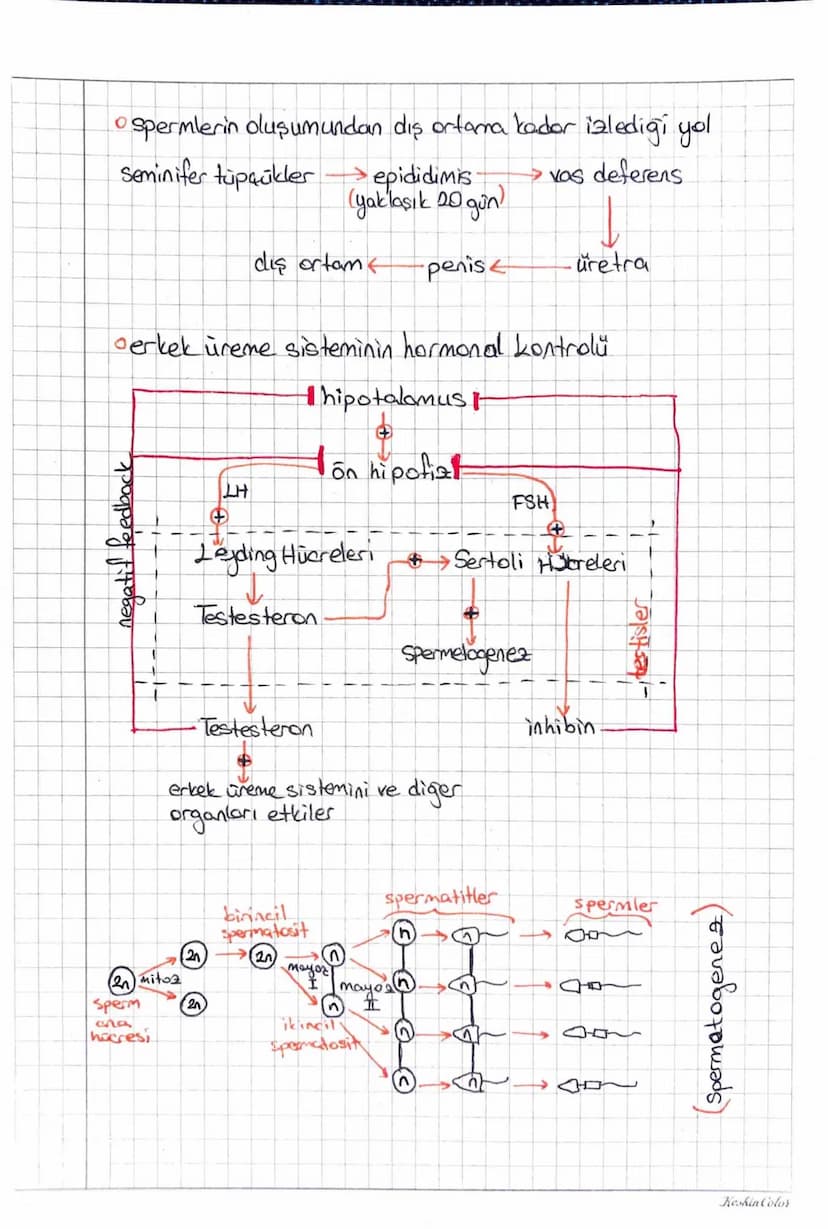 spermlerin oluşumundan dış ortama kadar izlediği yol
seminifer tüpçükler → epididimis → vas deferens
(yaklaşık 20 gün)
dış ortam ← penis ← üretra
erkek üreme sisteminin hormonal kontrolü
hipotalamus
+
ön hipofiz
LH
FSH
+
+
negatif feedback
Leyding Hücreleri + Sertoli Hücreleri
Testesteron
+
spermetogenez
testisler
Testesteron
inhibin
+
erkek üreme sistemini ve diğer
organları etkiler
spermatitler
spermler
birincil
spermatosit
2n mitoz 2n 2n 2n
sperm
ana
hücresi
mayoz
I
n n
mayoz
II
ikincil
spermatosit
n n
n n
n n
n n
(Spermatogenez)
KeskinColor